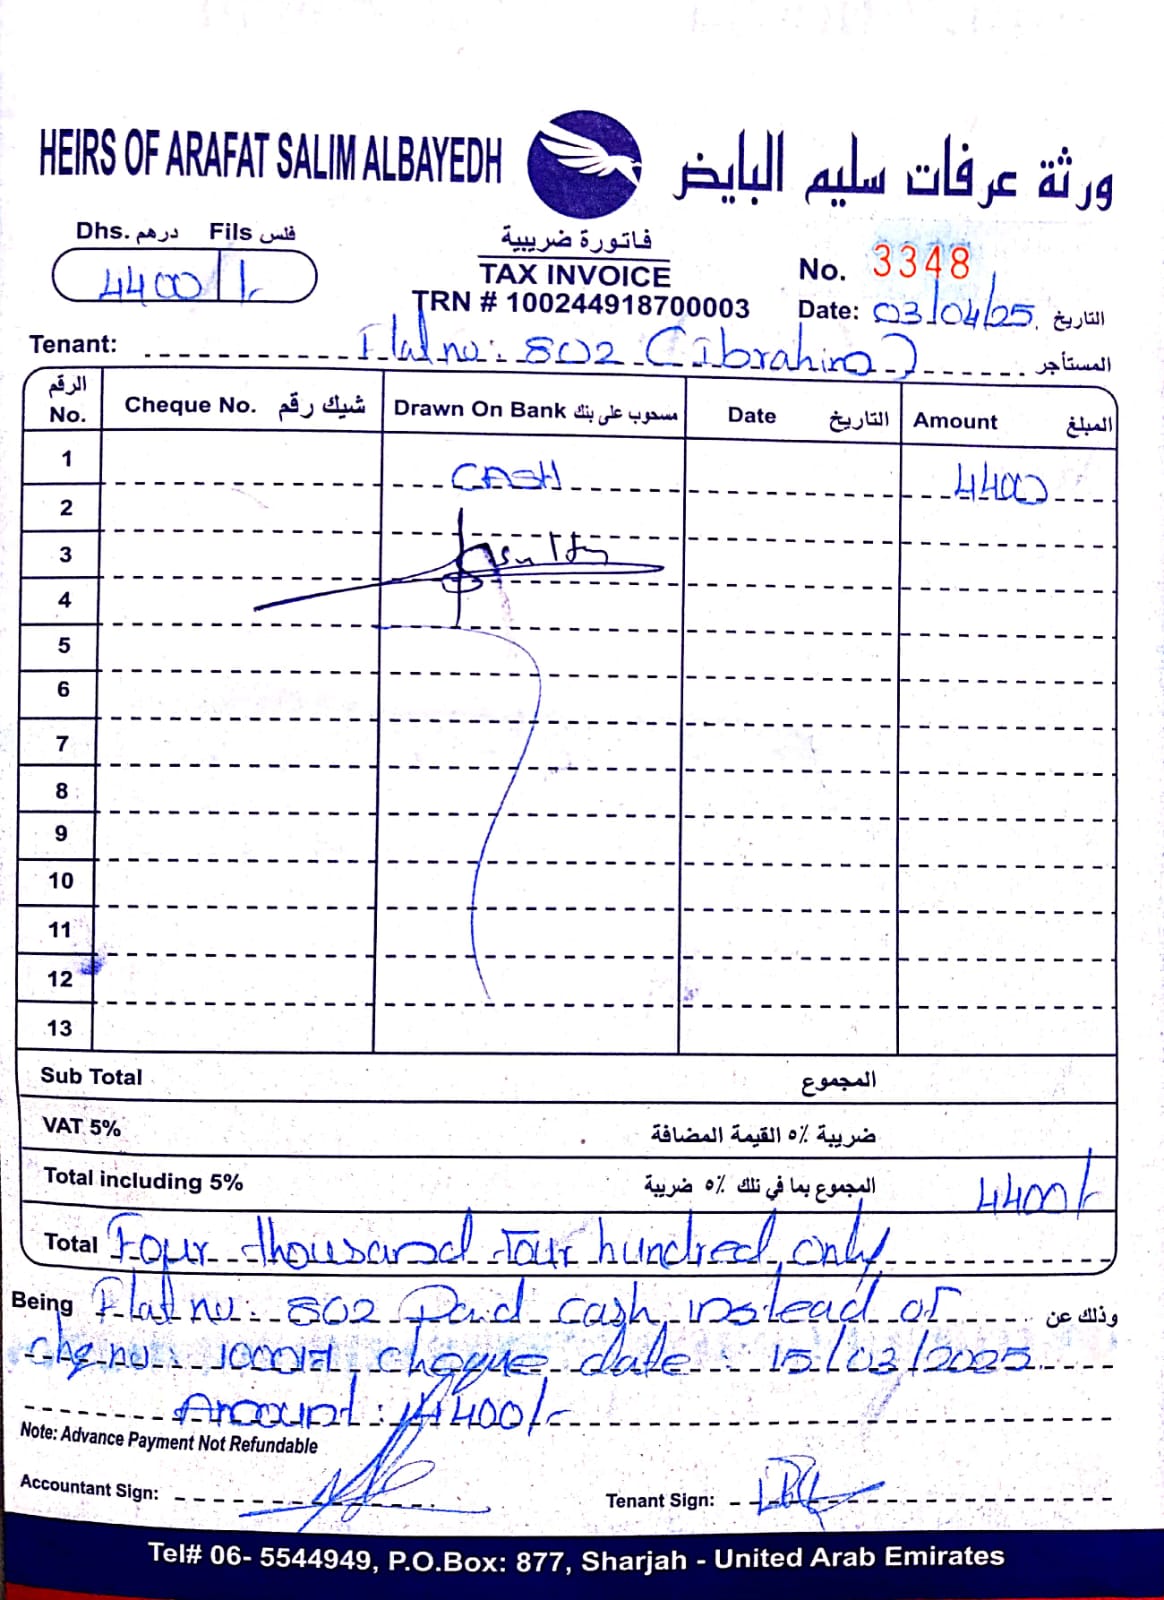 HEIRS OF ARAFAT SALIM ALBAYEDH
ورثة عرفات سليم البايض
Dhs. درهم Fils فلس
4400/-
فاتورة ضريبية
TAX INVOICE
TRN # 100244918700003
No. 3348
Date: 03/04/25 التاريخ
Tenant: Flat no: 802 (Ibrahim) المستأجر
الرقم No. Cheque No. شيك رقم Drawn On Bank مسحوب على بنك Date التاريخ Amount المبلغ
1 CASH 4400
2
3
4
5
6
7
8
9
10
11
12
13
Sub Total المجموع
VAT 5% ضريبة ٥٪ القيمة المضافة
Total including 5% المجموع بما في تلك ٥٪ ضريبة 4400/-
Total Four thousand four hundred only
Being Flat no: 802 Paid cash instead of وذلك عن
Chq no: cheque date: 15/03/2025
Amount: 4400/-
Note: Advance Payment Not Refundable
Accountant Sign:
Tenant Sign:
Tel# 06- 5544949, P.O.Box: 877, Sharjah - United Arab Emirates